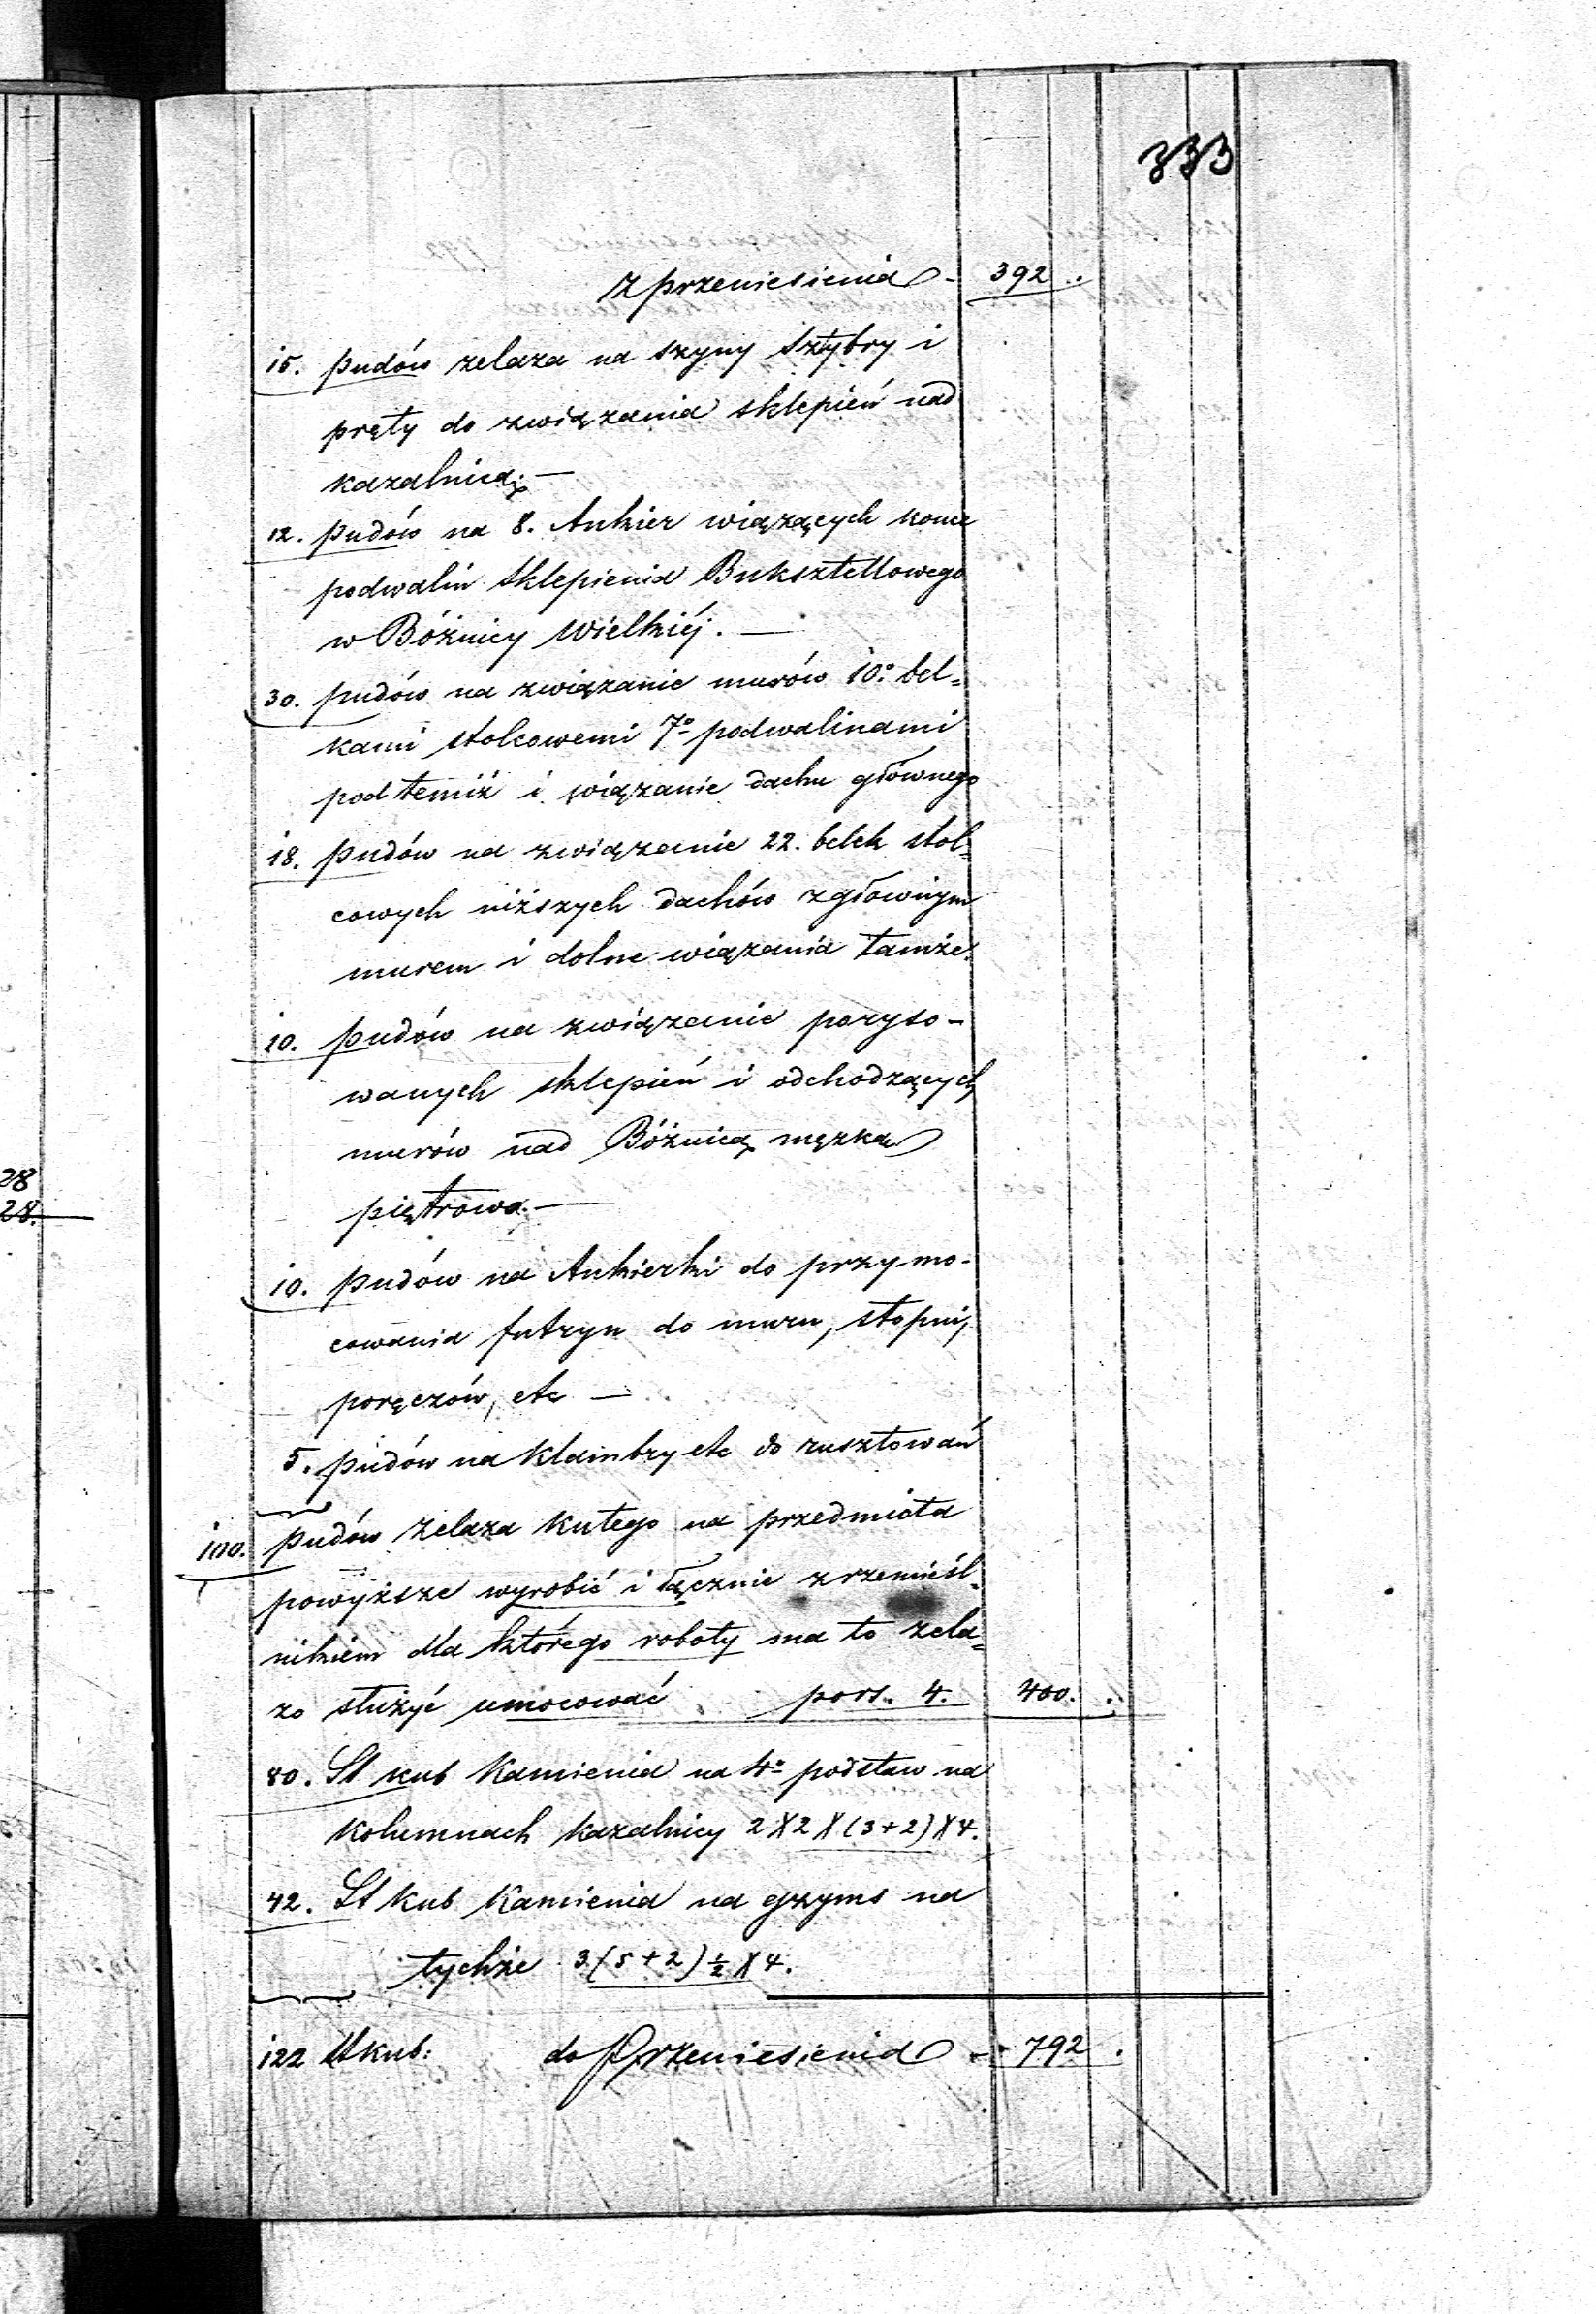 333
z przeniesienia - 392 ..
15. pudów zelaza na szyny sztybry i
pręty do związania sklepień nad
kazalnicą. —
12. pudów na 8. Ankier wiążących konce
podwalin sklepienia Buksztellowego
w Bóżnicy Wielkiéj. —
30. pudów na związanie murów 10.° bel=
kami stolcowemi 7° podwalinami
pod temiż i wiązanie dachu głównego
18. pudów na związanie 22. belek stol=
cowych niższych dachów z głównym
murem i dolne wiązania tamże.
10. pudów na związanie poryso-
wanych sklepień i odchodzących
murów nad Bóżnicą męzką
piętrową. —
10. pudów na Ankierki do przymo-
cowania futryn do muru, stopni,
poręczów, etc —
5. pudów na klambry etc do rusztowań
100. pudów żelaza kutego na przedmiota
powyższe wyrobić i łącznie z rzemieśl=
nikiem dla którego roboty ma to zela=
zo służyć umocować po rs. 4. 400. .
80. St kub Kamienia na 4° podstaw na
kolumnach kazalnicy 2 X 2 X (3+2) X 4.
42. St kub Kamienia na gzyms na
tychże 3 (5+2) ½ X 4.
122 St kub: do Przeniesienia - 792 .
28
28.